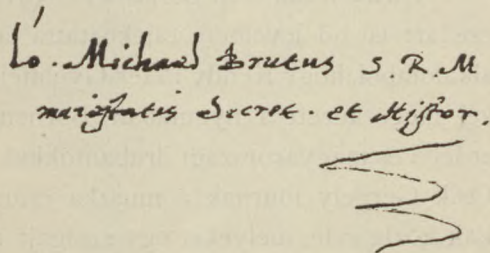 Io. Michael Brutus S R. M
maiestatis Secret. et Histor.